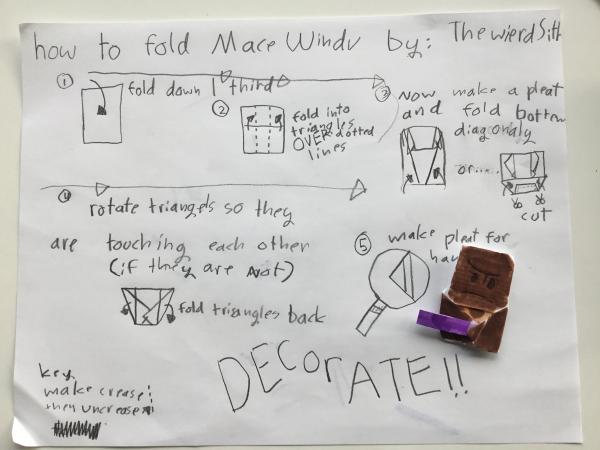 how to fold Mace Windu by: The wierd Sith
① fold down 1 third
② fold into
triangles
OVER dotted
lines
③ Now make a pleat
and fold bottom
diagonaly
or.....
cut
④ rotate triangels so they
are touching each other
(if they are not)
fold triangles back
⑤ make pleat for
DECorATE!!
key
make crease
then uncrease